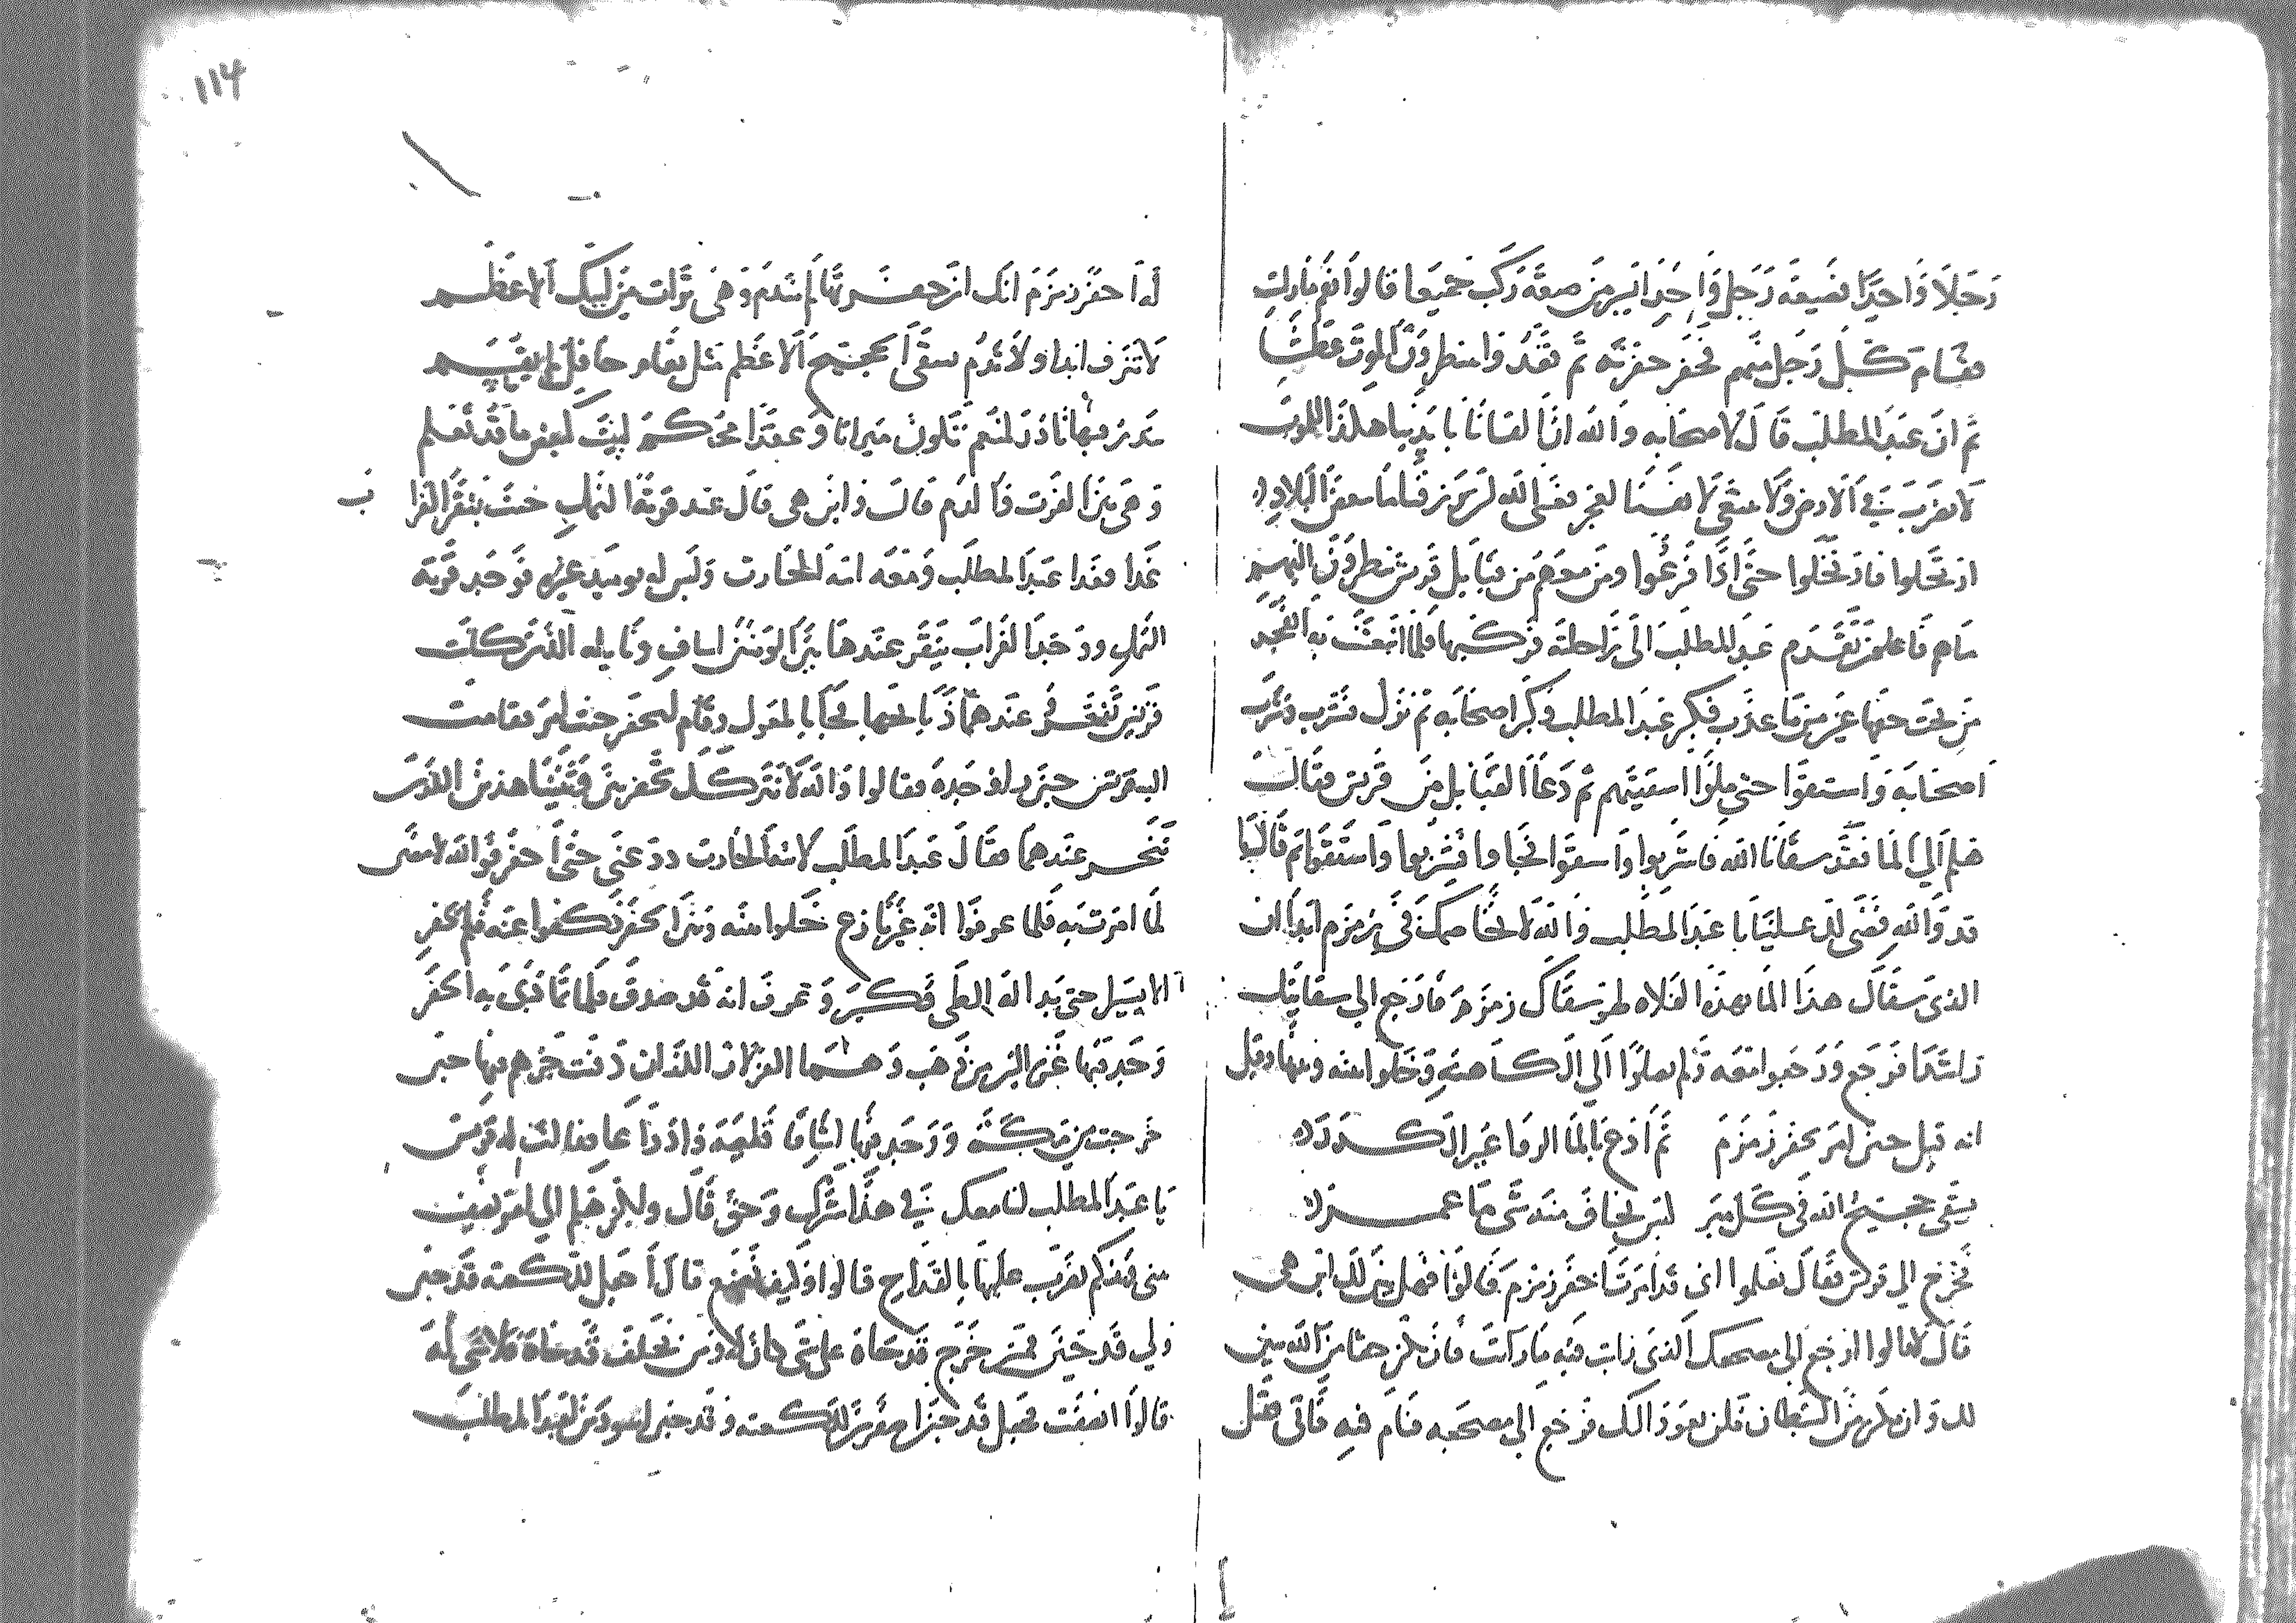 رجلا واحدا فضيعة رجل واحد ايسر من ضيعة ركب جميعا قالوا نعم ما رايت
فقام كل رجل منهم فحفر حفرته ثم قعدوا ينتظرون الموت عطشا
ثم ان عبد المطلب قال لاصحابه والله ان القانا بايدينا هكذا للموت
لا نضرب في الارض ولا نبتغي لانفسنا لعجز فعسى الله ان يرزقنا ما ببعض البلاد
ارتحلوا فارتحلوا حتى اذا فرغوا ومن معهم من قبايل قريش ينظرون اليهم
ما هم فاعلون تقدم عبد المطلب الى راحلته فركبها فلما انبعثت به انفجرت
من تحت خفها عين من ما عذب فكبر عبد المطلب وكبر اصحابه ثم نزل فشرب وشرب
اصحابه واستقوا حتى ملوا اسقيتهم ثم دعا القبايل من قريش فقال
هلم الى الما فقد سقانا الله فاشربوا واستقوا فجاوا فشربوا واستقوا ثم قالوا
قد والله قضى لك علينا يا عبد المطلب والله لا نخاصمك في زمزم ابدا ان
الذي سقاك هذا الما بهذه الفلاه لهو سقاك زمزم فارجع الى سقايتك
راشدا فرجع ورجعوا معه ولم يصلوا الى الكاهنه وخلوا بينه وبينها وقيل
انه قيل حين امر بحفر زمزم ثم ادع بالما الروا غير الكدر
يسقي حجيج الله في كل مبر ليس يخاف منه شي ما عمر
فخرج الى قريش فقال تعلموا اني قد امرت ان احفر زمزم قالوا فهل بين لك اين هي
قال لا قالوا ارجع الى مضجعك الذي رايت فيه ما رايت فان يكن حقا من الله يبين
لك وان يكن من الشيطان فلن يعود اليك فرجع الى مضجعه فنام فيه فاتى فقيل
١١٤
له احفر زمزم انك ان حفرتها لم تندم وهي تراث من ابيك الاعظم
لا تنزف ابدا ولا تذم تسقي الحجيج الاعظم مثل نعام حافل لم يقسم
ينذر فيها ناذر لمنعم تكون ميراثا وعقدا محكم ليست كبعض ما قد تعلم
وهي بين الفرث والدم قال واين هي قال عند قرية النمل حيث ينقر الغرا ب
غدا فغدا عبد المطلب ومعه ابنه الحارث وليس له يوميذ غيره فوجد قرية
النمل ووجد الغراب ينقر عندها بين الوثنين اساف ونايله الذين كانت
قريش تنحر عندهما ذبايحها فجا بالمعول وقام ليحفر حيث امر فقامت
اليه قريش حين راوا جده فقالوا والله لا نتركك تحفر بين وثنينا هذين الذين
ننحر عندهما فقال عبد المطلب لابنه الحارث ذد عني حتى احفر فوالله لامضين
لما امرت به فلما عرفوا انه غير نازع خلوا بينه وبين الحفر وكفوا عنه فلم يحفر
الا يسيرا حتى بدا له الطي فكبر وعرف انه قد صدق فلما تمادى به الحفر
وجد فيها غزالين من ذهب وهما الغزالان اللذان دفنت جرهم فيها حين
خرجت من مكة ووجد فيها اسيافا قلعية وادراعا فقالت له قريش
يا عبد المطلب لنا معك في هذا شرك وحق قال لا ولكن هلم الى امر نصف
بيني وبينكم نضرب عليها بالقداح قالوا وكيف نصنع قال اجعل للكعبة قدحين
ولي قدحين فمن خرج قدحاه على شي كان له ومن تخلف قدحاه فلا شي له
قالوا انصفت فجعل قدحين اصفرين للكعبه وقدحين اسودين لعبد المطلب